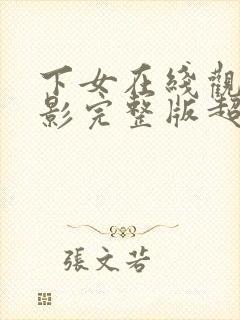 下女在綫觀
影完整版超
張文若